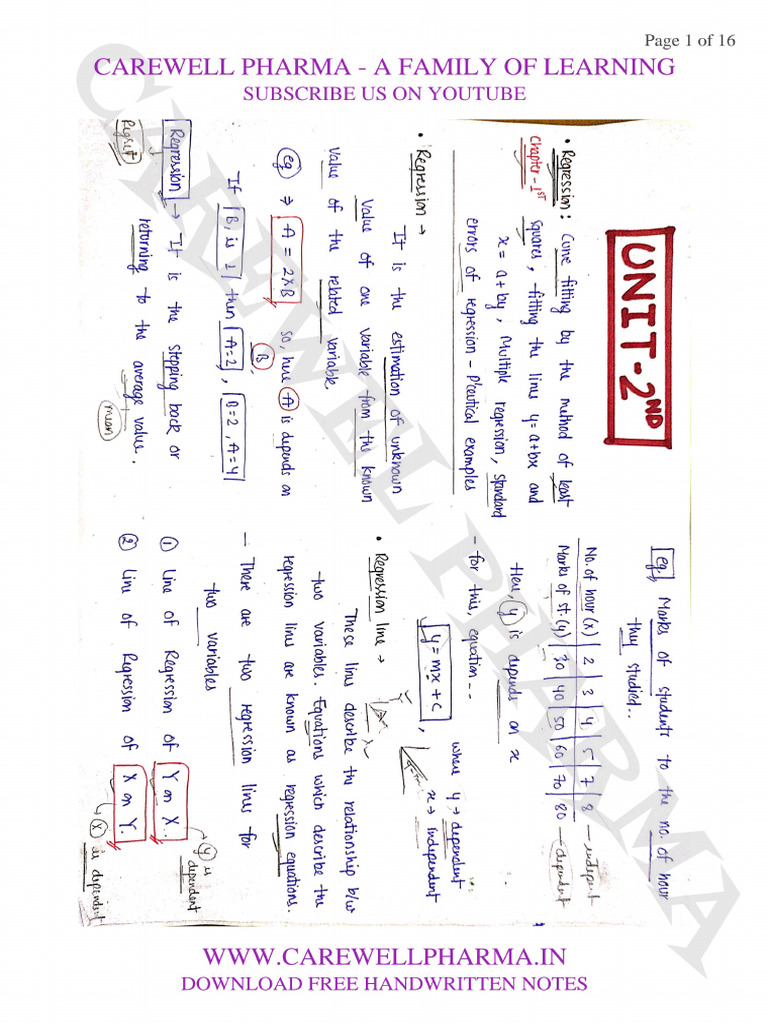 Page 1 of 16
CAREWELL PHARMA - A FAMILY OF LEARNING
SUBSCRIBE US ON YOUTUBE
UNIT-2ND
• Regression: Curve fitting by the method of least
Chapter-1ST squares, fitting the lines y=a+bx and
x=a+by, Multiple regression, standard
errors of regression - P'ceutical examples
• Regression →
It is the estimation of unknown
value of one variable from the known
value of the related variable.
eg ⇒ A = 2×B so, here A is depends on
B
If B is 1 then A=2, B=2, A=4
Regression → It is the stepping back or
Regret returning to the average value.
mean
eg. Marks of students to the no. of hour
they studied..
No. of hour (x) | 2 | 3 | 4 | 5 | 7 | 8 - independent
Marks of st. (y) | 30 | 40 | 50 | 60 | 70 | 80 - dependent
Here, y is depends on x
- for this, equation --
y = mx + c, where y → dependent
x → independent
• Regression line →
Y
x
These lines describe the relationship b/w
two variables. Equations which describe the
regression lines are known as regression equations.
- There are two regression lines for
two variables
① Line of Regression of Y on X.
y is dependent
② Line of Regression of X on Y.
x is dependent
CAREWELL PHARMA
WWW.CAREWELLPHARMA.IN
DOWNLOAD FREE HANDWRITTEN NOTES